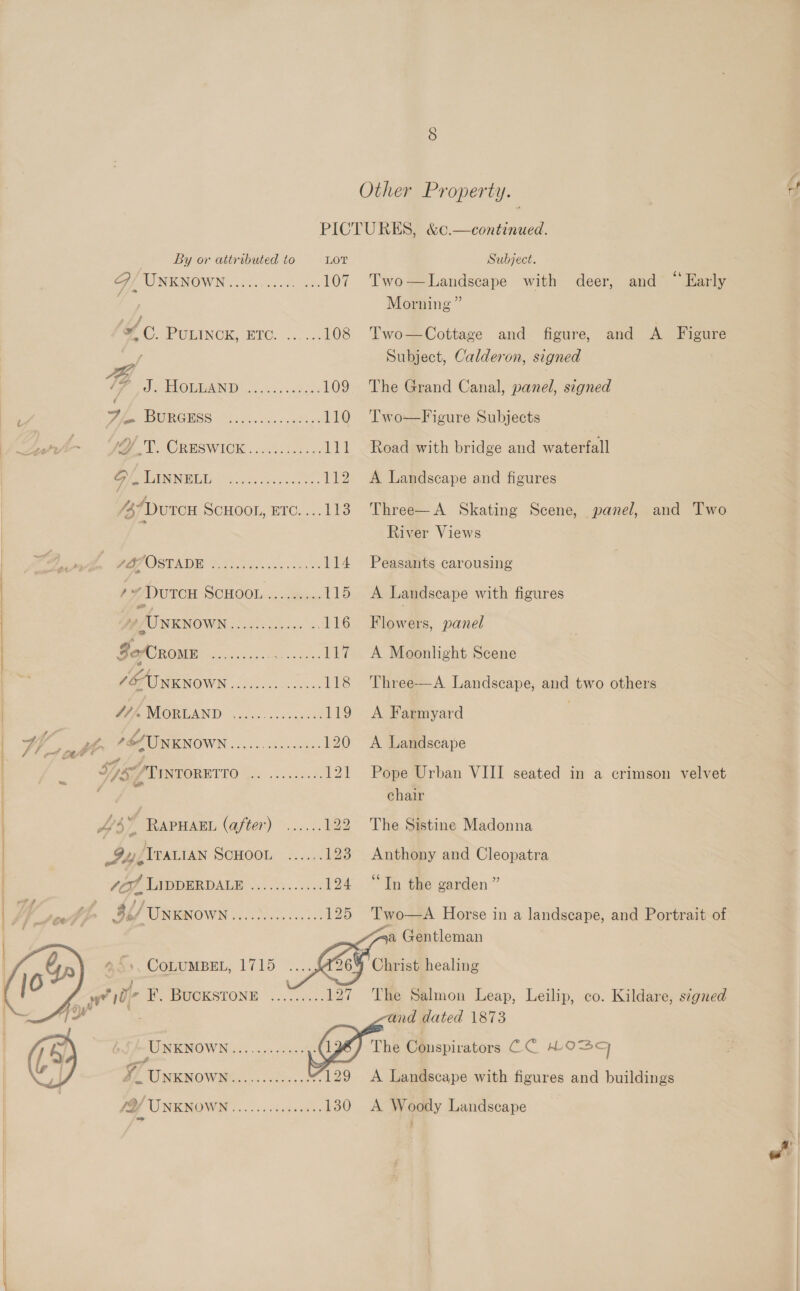 8
Other Property.
PICTURES, &c.—continued.
By or attributed to LOT Subject.
UNKNOWN ............ 107 Two—Landscape with deer, and “Early
Morning”
C. PULINCK, ETC. ...... 108 Two—Cottage and figure, and A Figure
Subject, Calderon, signed
J. HOLLAND ............ 109 The Grand Canal, panel, signed
BURGESS ............ 110 Two—Figure Subjects
T. CRESWICK ............ 111 Road with bridge and waterfall
LINNELL ............ 112 A Landscape and figures
DUTCH SCHOOL, ETC. ... 113 Three—A Skating Scene, panel, and Two
River Views
OSTADE ............ 114 Peasants carousing
DUTCH SCHOOL ......... 115 A Landscape with figures
UNKNOWN ............ 116 Flowers, panel
CROME ............ 117 A Moonlight Scene
UNKNOWN ............ 118 Three—A Landscape, and two others
MORLAND ............ 119 A Farmyard
UNKNOWN ............ 120 A Landscape
TINTORETTO ............ 121 Pope Urban VIII seated in a crimson velvet
chair
RAPHAEL (after) ...... 122 The Sistine Madonna
ITALIAN SCHOOL ...... 123 Anthony and Cleopatra
LIDDERDALE ............ 124 “In the garden”
UNKNOWN ............ 125 Two—A Horse in a landscape, and Portrait of
a Gentleman
COLUMBEL, 1715 .... 126 Christ healing
F. BUCKSTONE ......... 127 The Salmon Leap, Leilip, co. Kildare, signed
and dated 1873
UNKNOWN ............ 128 The Conspirators
UNKNOWN ............ 129 A Landscape with figures and buildings
UNKNOWN ............ 130 A Woody Landscape